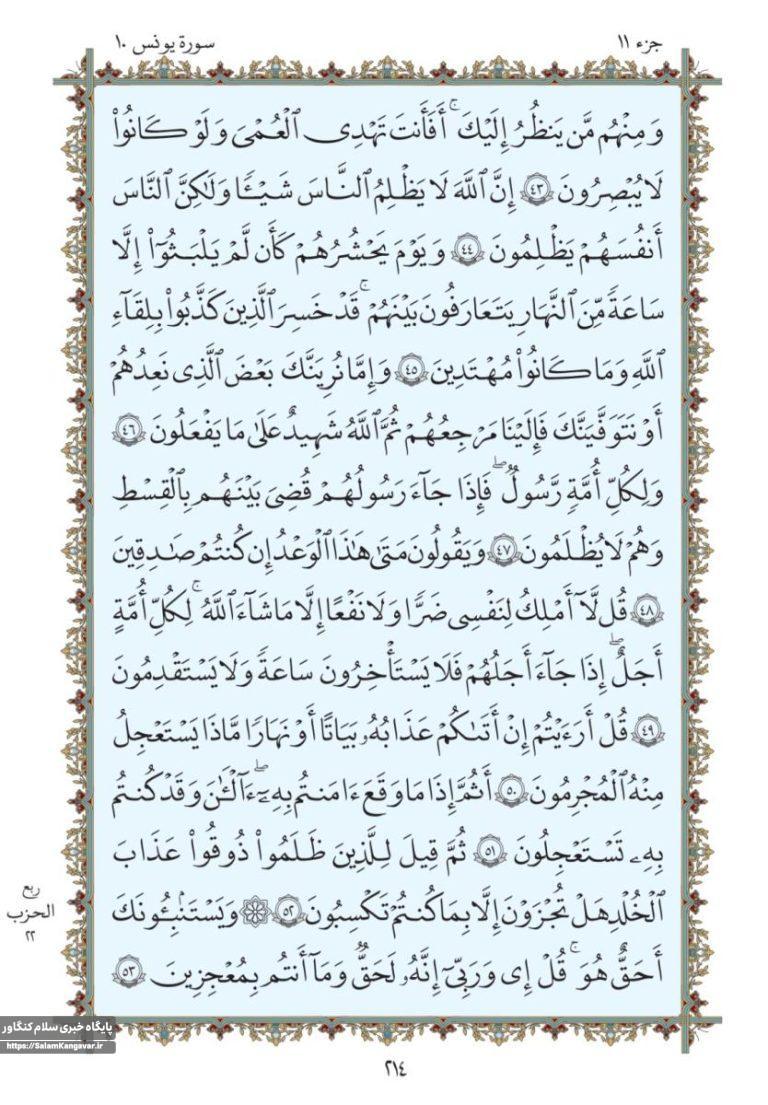 جزء ١١
سورة يونس ١٠
وَمِنْهُم مَّن يَنظُرُ إِلَيْكَ ۚ أَفَأَنتَ تَهْدِى ٱلْعُمْىَ وَلَوْ كَانُوا۟
لَا يُبْصِرُونَ ٤٣ إِنَّ ٱللَّهَ لَا يَظْلِمُ ٱلنَّاسَ شَيْـًٔا وَلَـٰكِنَّ ٱلنَّاسَ
أَنفُسَهُمْ يَظْلِمُونَ ٤٤ وَيَوْمَ يَحْشُرُهُمْ كَأَن لَّمْ يَلْبَثُوٓا۟ إِلَّا
سَاعَةً مِّنَ ٱلنَّهَارِ يَتَعَارَفُونَ بَيْنَهُمْ ۚ قَدْ خَسِرَ ٱلَّذِينَ كَذَّبُوا۟ بِلِقَآءِ
ٱللَّهِ وَمَا كَانُوا۟ مُهْتَدِينَ ٤٥ وَإِمَّا نُرِيَنَّكَ بَعْضَ ٱلَّذِى نَعِدُهُمْ
أَوْ نَتَوَفَّيَنَّكَ فَإِلَيْنَا مَرْجِعُهُمْ ثُمَّ ٱللَّهُ شَهِيدٌ عَلَىٰ مَا يَفْعَلُونَ ٤٦
وَلِكُلِّ أُمَّةٍ رَّسُولٌ ۖ فَإِذَا جَآءَ رَسُولُهُمْ قُضِىَ بَيْنَهُم بِٱلْقِسْطِ
وَهُمْ لَا يُظْلَمُونَ ٤٧ وَيَقُولُونَ مَتَىٰ هَـٰذَا ٱلْوَعْدُ إِن كُنتُمْ صَـٰدِقِينَ
٤٨ قُل لَّآ أَمْلِكُ لِنَفْسِى ضَرًّا وَلَا نَفْعًا إِلَّا مَا شَآءَ ٱللَّهُ ۗ لِكُلِّ أُمَّةٍ
أَجَلٌ ۚ إِذَا جَآءَ أَجَلُهُمْ فَلَا يَسْتَـْٔخِرُونَ سَاعَةً وَلَا يَسْتَقْدِمُونَ
٤٩ قُلْ أَرَءَيْتُمْ إِنْ أَتَىٰكُمْ عَذَابُهُۥ بَيَـٰتًا أَوْ نَهَارًا مَّاذَا يَسْتَعْجِلُ
مِنْهُ ٱلْمُجْرِمُونَ ٥٠ أَثُمَّ إِذَا مَا وَقَعَ ءَامَنتُم بِهِۦٓ ۚ ءَآلْـَٔـٰنَ وَقَدْ كُنتُم
بِهِۦ تَسْتَعْجِلُونَ ٥١ ثُمَّ قِيلَ لِلَّذِينَ ظَلَمُوا۟ ذُوقُوا۟ عَذَابَ
ٱلْخُلْدِ هَلْ تُجْزَوْنَ إِلَّا بِمَا كُنتُمْ تَكْسِبُونَ ٥٢ وَيَسْتَنۢبِـُٔونَكَ
أَحَقٌّ هُوَ ۖ قُلْ إِى وَرَبِّىٓ إِنَّهُۥ لَحَقٌّ ۖ وَمَآ أَنتُم بِمُعْجِزِينَ ٥٣
ربع
الحزب
٢٢
٢١٤
پایگاه خبری سلام کنگاور
https://SalamKangavar.ir